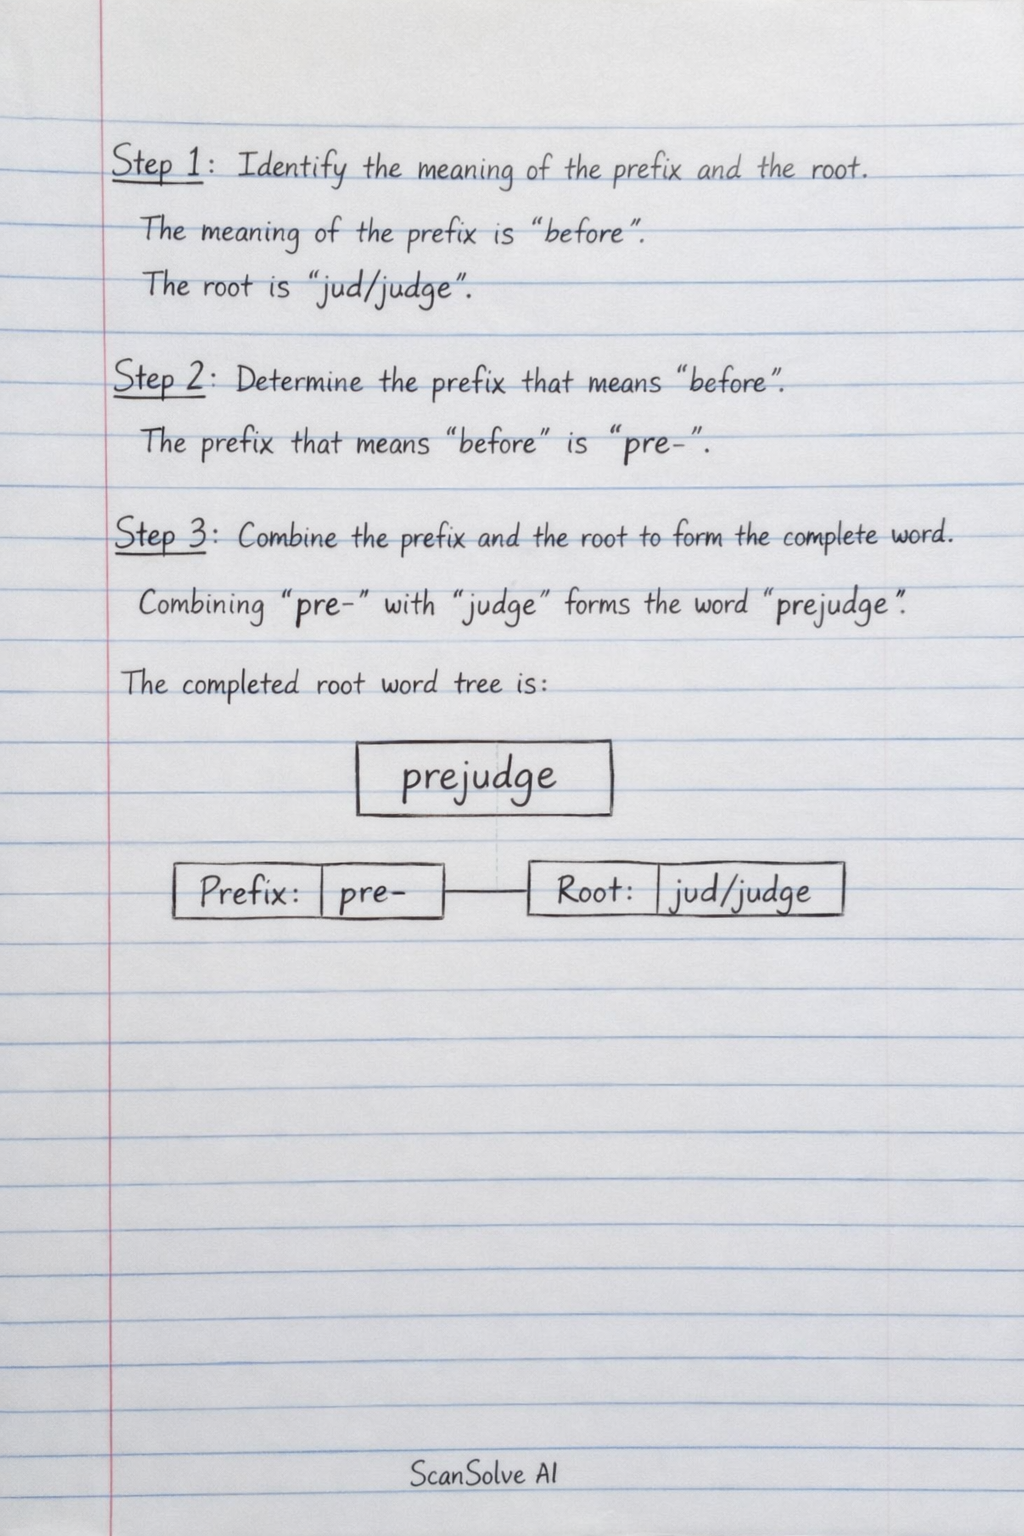 Step 1: Identify the meaning of the prefix and the root.
The meaning of the prefix is “before”.
The root is “jud/judge”.
Step 2: Determine the prefix that means “before”.
The prefix that means “before” is “pre-”.
Step 3: Combine the prefix and the root to form the complete word.
Combining “pre-” with “judge” forms the word “prejudge”.
The completed root word tree is:
prejudge
Prefix: pre- Root: jud/judge
ScanSolve AI